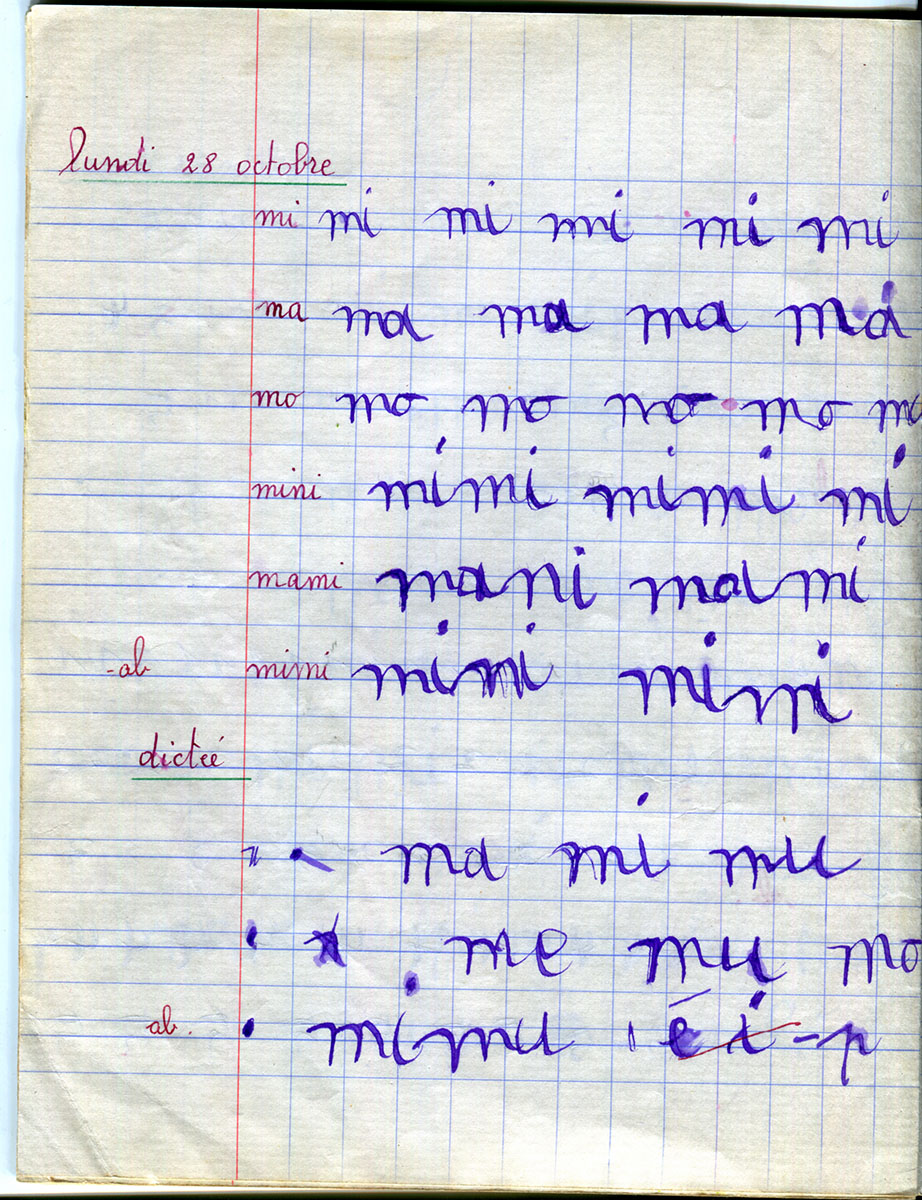 lundi 28 octobre
mi mi mi mi mi mi
ma ma ma ma ma
mo mo mo no mo mo
mini mimi mimi mi
mami mani mami
-ab mimi mimi mimi
dictée
ma mi mu
me mu mo
ab. mimu é i - p